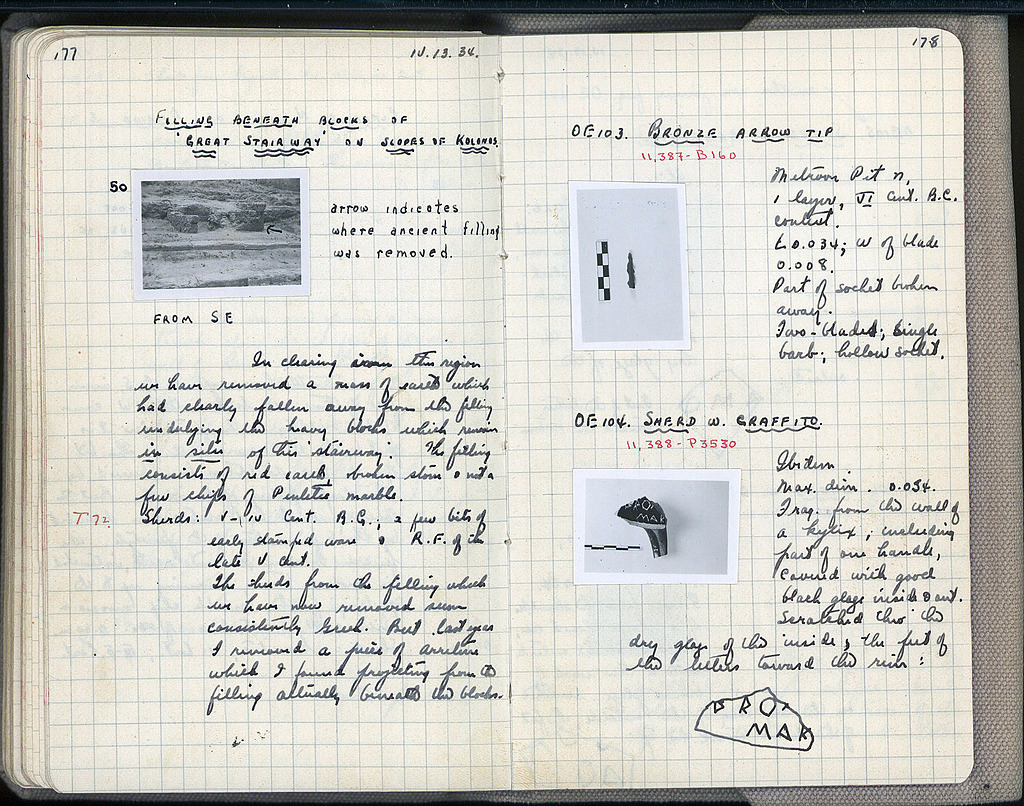 177
IV.13.34.
FILLING BENEATH BLOCKS OF
'GREAT STAIRWAY' ON SLOPES OF KOLONOS.
50
arrow indicates
where ancient filling
was removed.
FROM SE
In clearing this region
we have removed a mass of earth which
had clearly fallen away from the filling
underlying the heavy blocks which remain
in situ of this 'stairway'. The filling
consists of red earth, broken stone & not a
few chips of Pentelic marble.
T 72
Sherds: V-IV Cent. B.C., a few bits of
early stamped ware & R.F. of the
late V cent.
The sherds from the filling which
we have now removed seem
consistently Greek. But last year
I removed a piece of arretine
which I found projecting from the
filling actually beneath the blocks.
178
OE103. BRONZE ARROW TIP
11,387-B160
Metroon Pit n,
1 layer, VI Cent. B.C.
context.
L 0.034; W of blade
0.008.
Part of socket broken
away.
Two-bladed; single
barb; hollow socket.
OE104. SHERD W. GRAFFITO.
11,388-P3530
Ibidem
Max. dim. 0.054.
Frag. from the wall of
a kylix, including
part of one handle,
covered with good
black glaze inside & out.
Scratched thro' the
dry glaze of the inside, the feet of
the letters toward the rim:
ΡΟ
ΜΑΚ